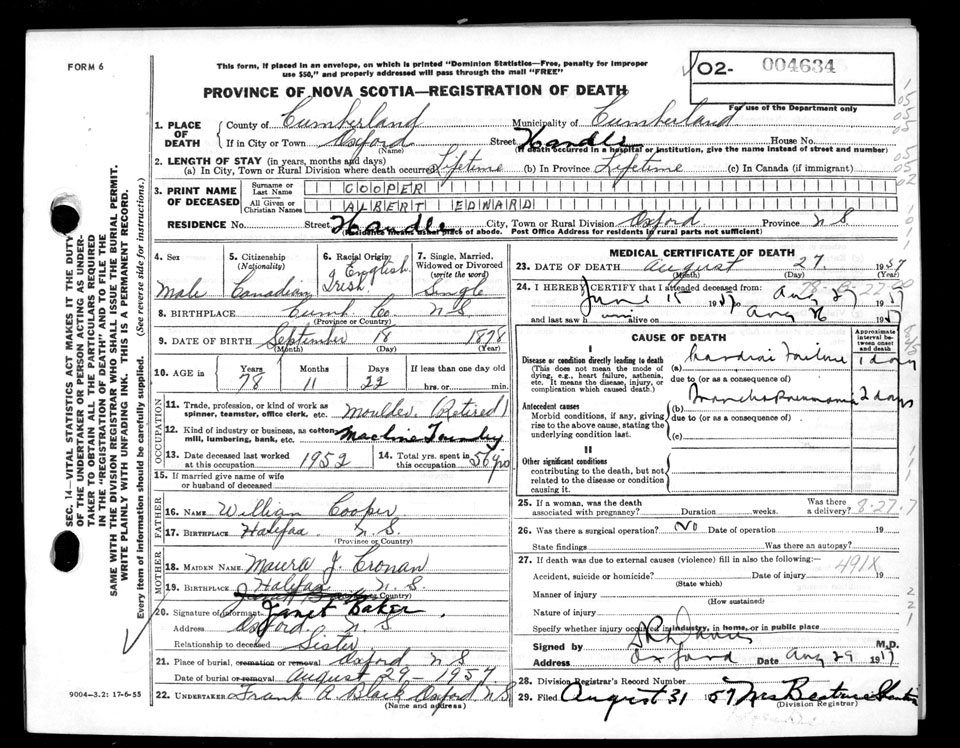 FORM 6
This form, if placed in an envelope, on which is printed "Dominion Statistics—Free, penalty for improper
use $50," and properly addressed will pass through the mail "FREE"
O2- 004634
For use of the Department only
PROVINCE OF NOVA SCOTIA—REGISTRATION OF DEATH
1. PLACE OF DEATH County of Cumberland Municipality of Cumberland
If in City or Town Oxford (Name) Street House No.
(If death occurred in a hospital or institution, give the name instead of street and number)
2. LENGTH OF STAY (in years, months and days)
(a) In City, Town or Rural Division where death occurred Lifetime (b) In Province Lifetime (c) In Canada (if immigrant)
3. PRINT NAME OF DECEASED
Surname or Last Name COOPER
All Given or Christian Names ALBERT EDWARD
RESIDENCE No. Street City, Town or Rural Division Oxford Province N S
(Residence means usual place of abode. Post Office Address for residents in rural parts not sufficient)
4. Sex Male
5. Citizenship (Nationality) Canadian
6. Racial Origin English Irish
7. Single, Married, Widowed or Divorced (write the word) Single
8. BIRTHPLACE Cumb. Co. N S
(Province or Country)
9. DATE OF BIRTH September 18 1878
(Month) (Day) (Year)
10. AGE in Years 78 Months 11 Days 22 If less than one day old hrs. or min.
OCCUPATION
11. Trade, profession, or kind of work as spinner, teamster, office clerk, etc. Moulder (Retired)
12. Kind of industry or business, as cotton mill, lumbering, bank, etc. Machine Foundry
13. Date deceased last worked at this occupation 1952
14. Total yrs. spent in this occupation 56 yrs
15. If married give name of wife or husband of deceased
FATHER
16. NAME William Cooper
17. BIRTHPLACE Halifax N. S.
(Province or Country)
MOTHER
18. MAIDEN NAME J. Cronan
19. BIRTHPLACE Halifax N. S.
20. Signature of informant Janet Baker
Address Oxford N. S
Relationship to deceased Sister
21. Place of burial, cremation or removal Oxford N S
Date of burial or removal August 29 – 1957
22. UNDERTAKER Frank A. Black Oxford N S
(Name and address)
MEDICAL CERTIFICATE OF DEATH
23. DATE OF DEATH August 27 1957
(Month) (Day)
24. I HEREBY CERTIFY that I attended deceased from
June 15 1957 to Aug 27 1957
and last saw him alive on Aug 26 1957
CAUSE OF DEATH
Approximate interval between onset and death
I
Disease or condition directly leading to death
(This does not mean the mode of dying, e.g., heart failure, asthenia, etc. It means the disease, injury, or complication which caused death.)
(a) Cardiac Failure 1 day
due to (or as a consequence of)
Antecedent causes
Morbid conditions, if any, giving rise to the above cause, stating the underlying condition last.
(b) Bronchopneumonia 2 days
due to (or as a consequence of)
(c)
II
Other significant conditions
contributing to the death, but not related to the disease or condition causing it.
25. If a woman, was the death associated with pregnancy? Duration weeks. Was there a delivery? 8-27-7
26. Was there a surgical operation? No Date of operation 19
State findings Was there an autopsy?
27. If death was due to external causes (violence) fill in also the following:—
491X
Accident, suicide or homicide? Date of injury 19
(State which)
Manner of injury
(How sustained)
Nature of injury
Specify whether injury occurred in industry, in home, or in public place
Signed by M.D.
Address Oxford Date Aug 29 19
28. Division Registrar's Record Number
29. Filed August 31 57 Mrs Beatrice
(Division Registrar)
9004—3.2: 17-6-55
SEC. 14—VITAL STATISTICS ACT MAKES IT THE DUTY
OF THE UNDERTAKER OR PERSON ACTING AS UNDER-
TAKER TO OBTAIN ALL THE PARTICULARS REQUIRED
IN THE "REGISTRATION OF DEATH" AND TO FILE THE
SAME WITH THE DIVISION REGISTRAR WHO SHALL ISSUE THE BURIAL PERMIT.
WRITE PLAINLY WITH UNFADING INK. THIS IS A PERMANENT RECORD.
Every item of information should be carefully supplied. (See reverse side for instructions.)